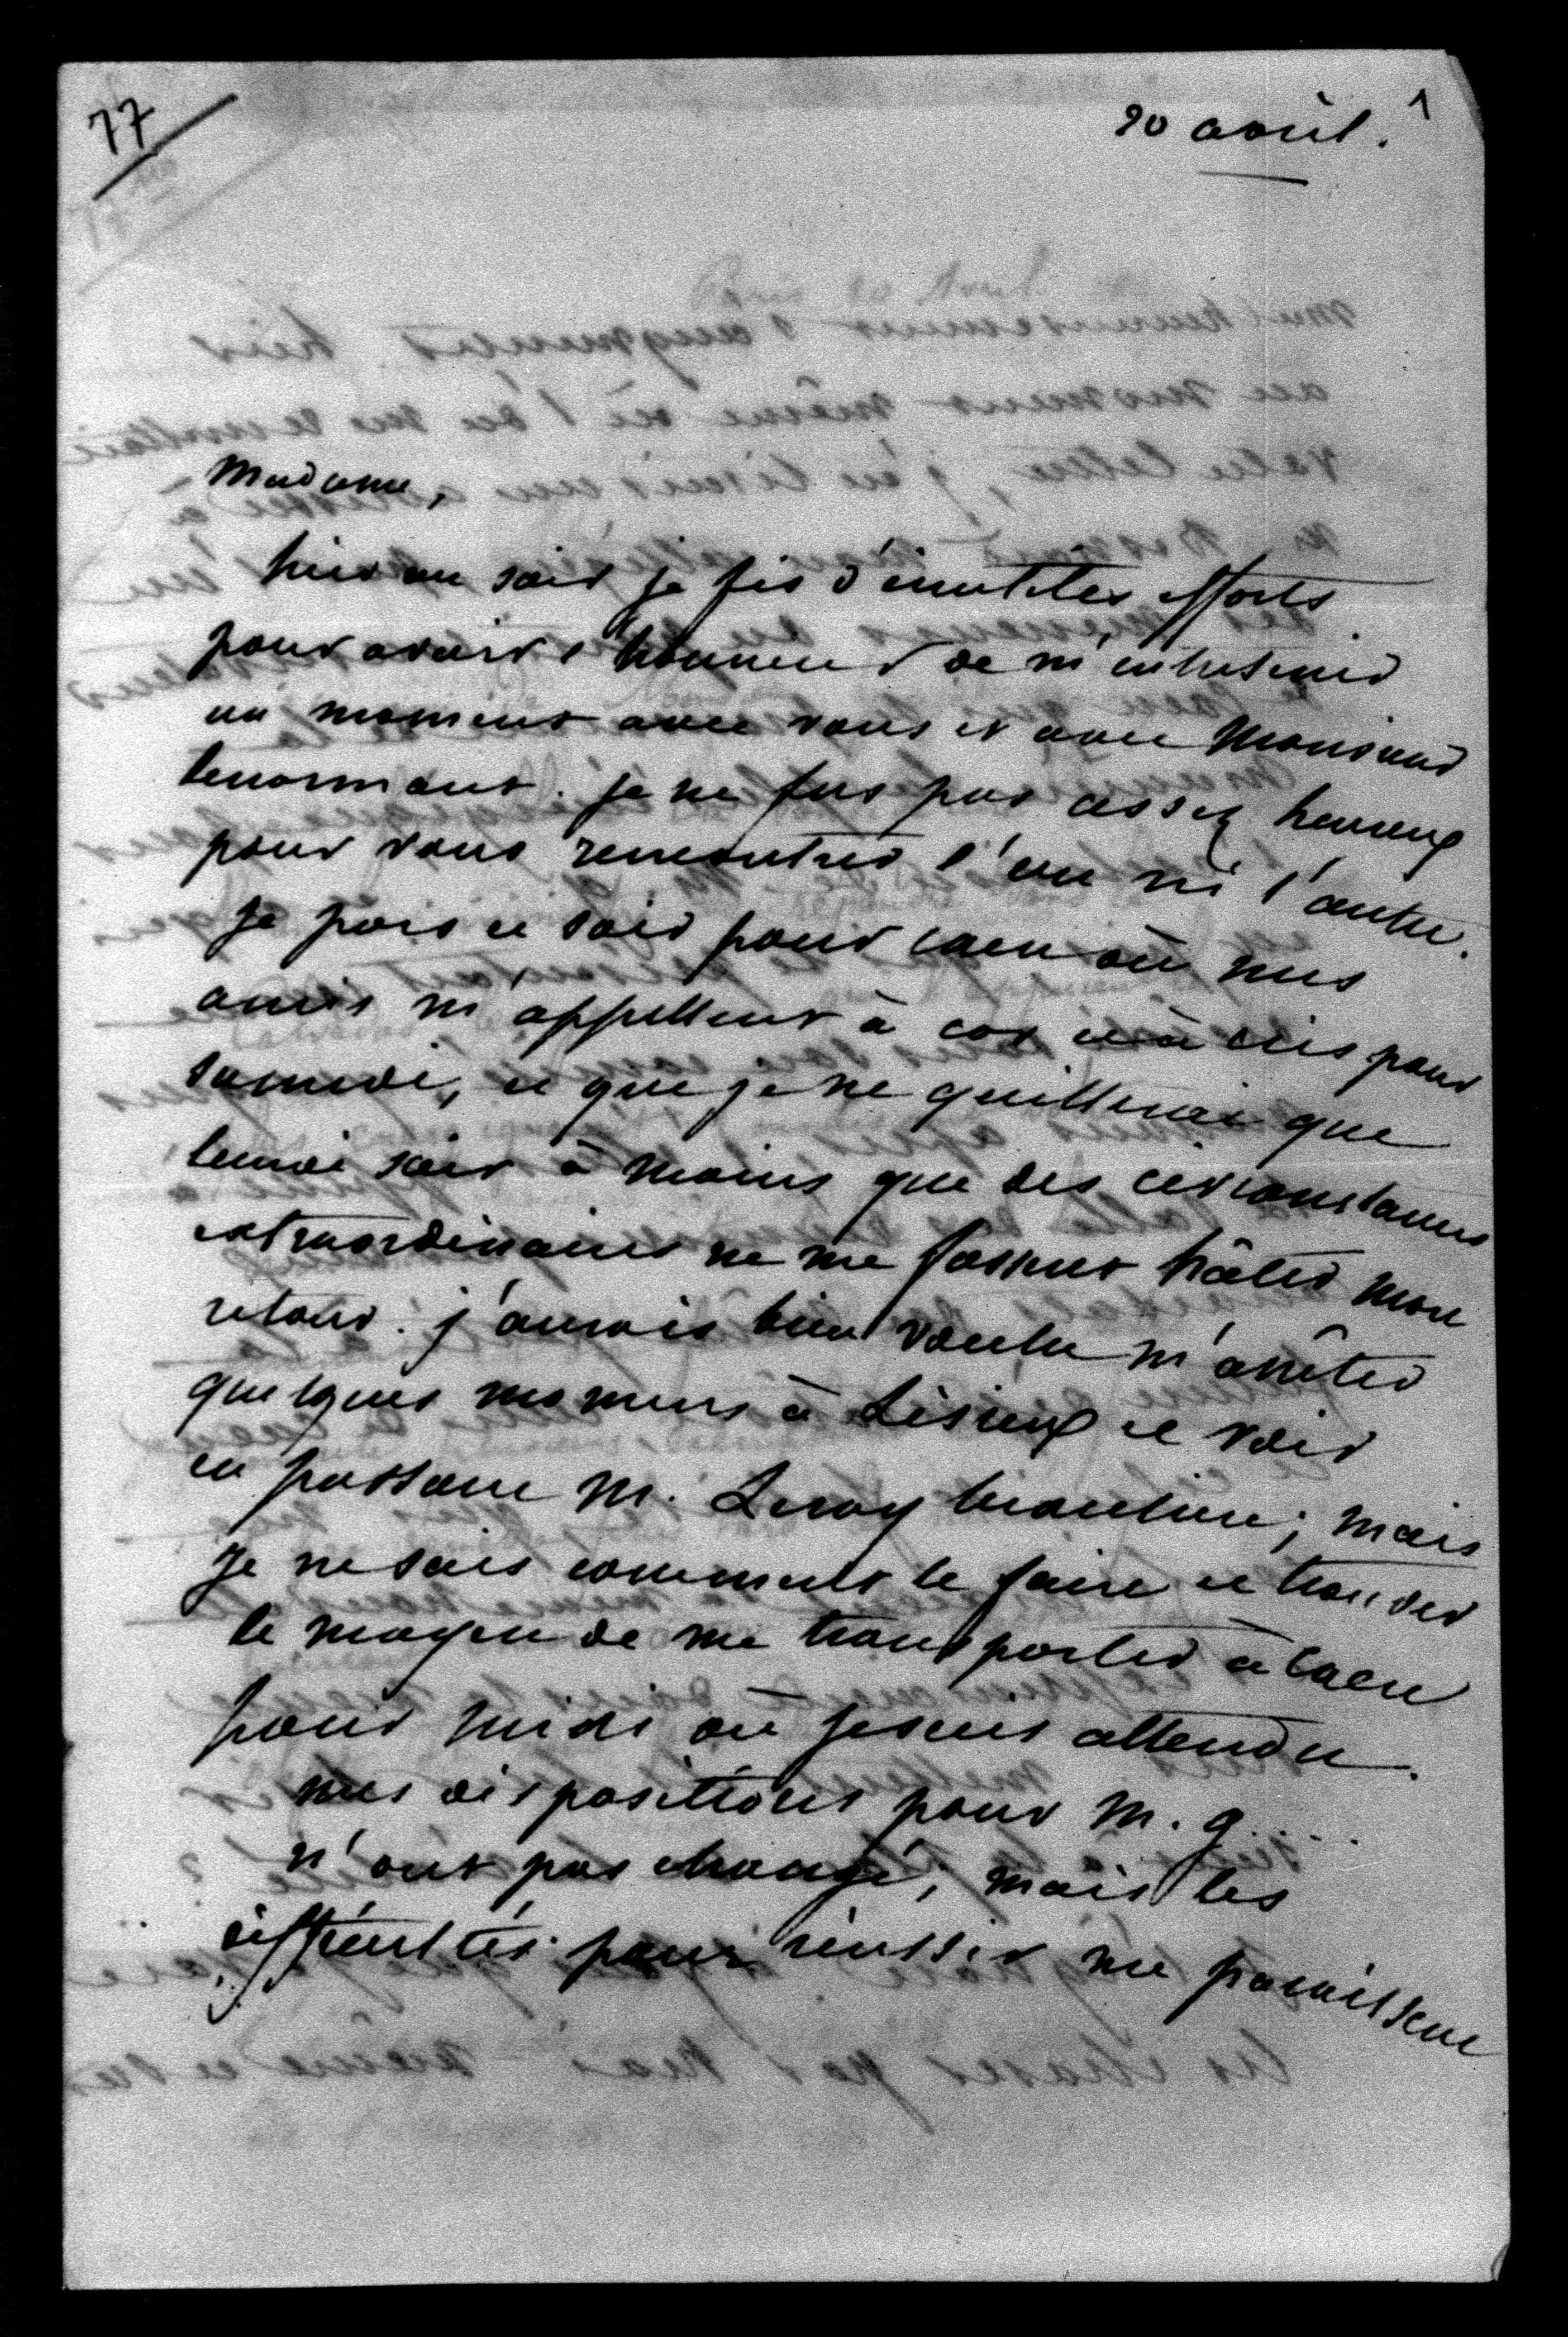 77
20 avril. 1
Madame,
hier au soir je fis d'inutiles efforts
pour avoir l'honneur de m'entretenir
un moment avec vous et avec Monsieur
Lenormant. je ne fus pas assez heureux
pour vous rencontrer l'un ni l'autre.
Je pars ce soir pour Caen où mes
amis m'appellent à cor et à cris pour
samedi, et que je ne quitterai que
lundi soir à moins que des circonstances
extraordinaires ne me fassent hâter mon
retour. j'aurais bien voulu m'arrêter
quelques momens à Lisieux et voir
en passant M. Leroy Beaulieu; mais
je ne sais comment le faire et trouver
le moyen de me transporter à Caen
pour midi où je suis attendu.
mes dispositions pour M. G....
n'ont pas changé; mais les
difficultés pour réussir me paraissent